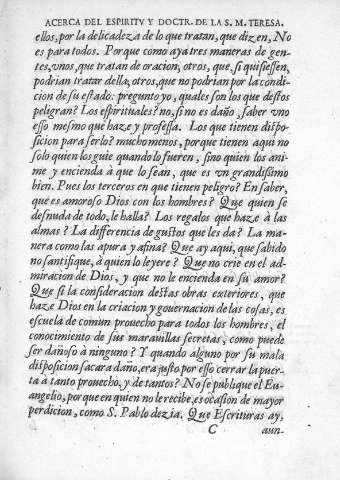 ACERCA DEL ESPIRITV Y DOCTR. DE LA S. M. TERESA.
ellos, por la delicadeza de lo que tratan, que dizen, No
es para todos. Porque como aya tres maneras de gen-
tes, vnos, que tratan de oracion, otros, que, si quisiessen,
podrian tratar della, otros, que no podrian por la condi-
cion de su estado: pregunto yo, quales son los que destos
peligran? Los espirituales? no, si no es daño, saber vno
esso mesmo que haze y professa. Los que tienen dispo-
sicion para serlo? mucho menos, porque tienen aqui no
solo quien los guie quando lo fueren, sino quien los ani-
me y encienda à que lo sean, que es vn grandissimo
bien. Pues los terceros en que tienen peligro? En saber,
que es amoroso Dios con los hombres? Que quien se
desnuda de todo, le halla? Los regalos que haze à las
almas? La differencia de gustos que les da? La ma-
nera como las apura y afina? Que ay aqui, que sabido
no santifique, à quien lo leyere? Que no crie en el ad-
miracion de Dios, y que no le encienda en su amor?
Que si la consideracion destas obras exteriores, que
haze Dios en la criacion y gouernacion de las cosas, es
escuela de comun prouecho para todos los hombres, el
conocimiento de sus marauillas secretas, como puede
ser dañoso à ninguno? Y quando alguno por su mala
disposicion sacara daño, era justo por esso cerrar la puer-
ta a tanto prouecho, y de tantos? No se publique el Eu-
angelio, porque en quien no le recibe, es ocasion de mayor
perdicion, como S. Pablo dezia. Que Escrituras ay,
C aun-